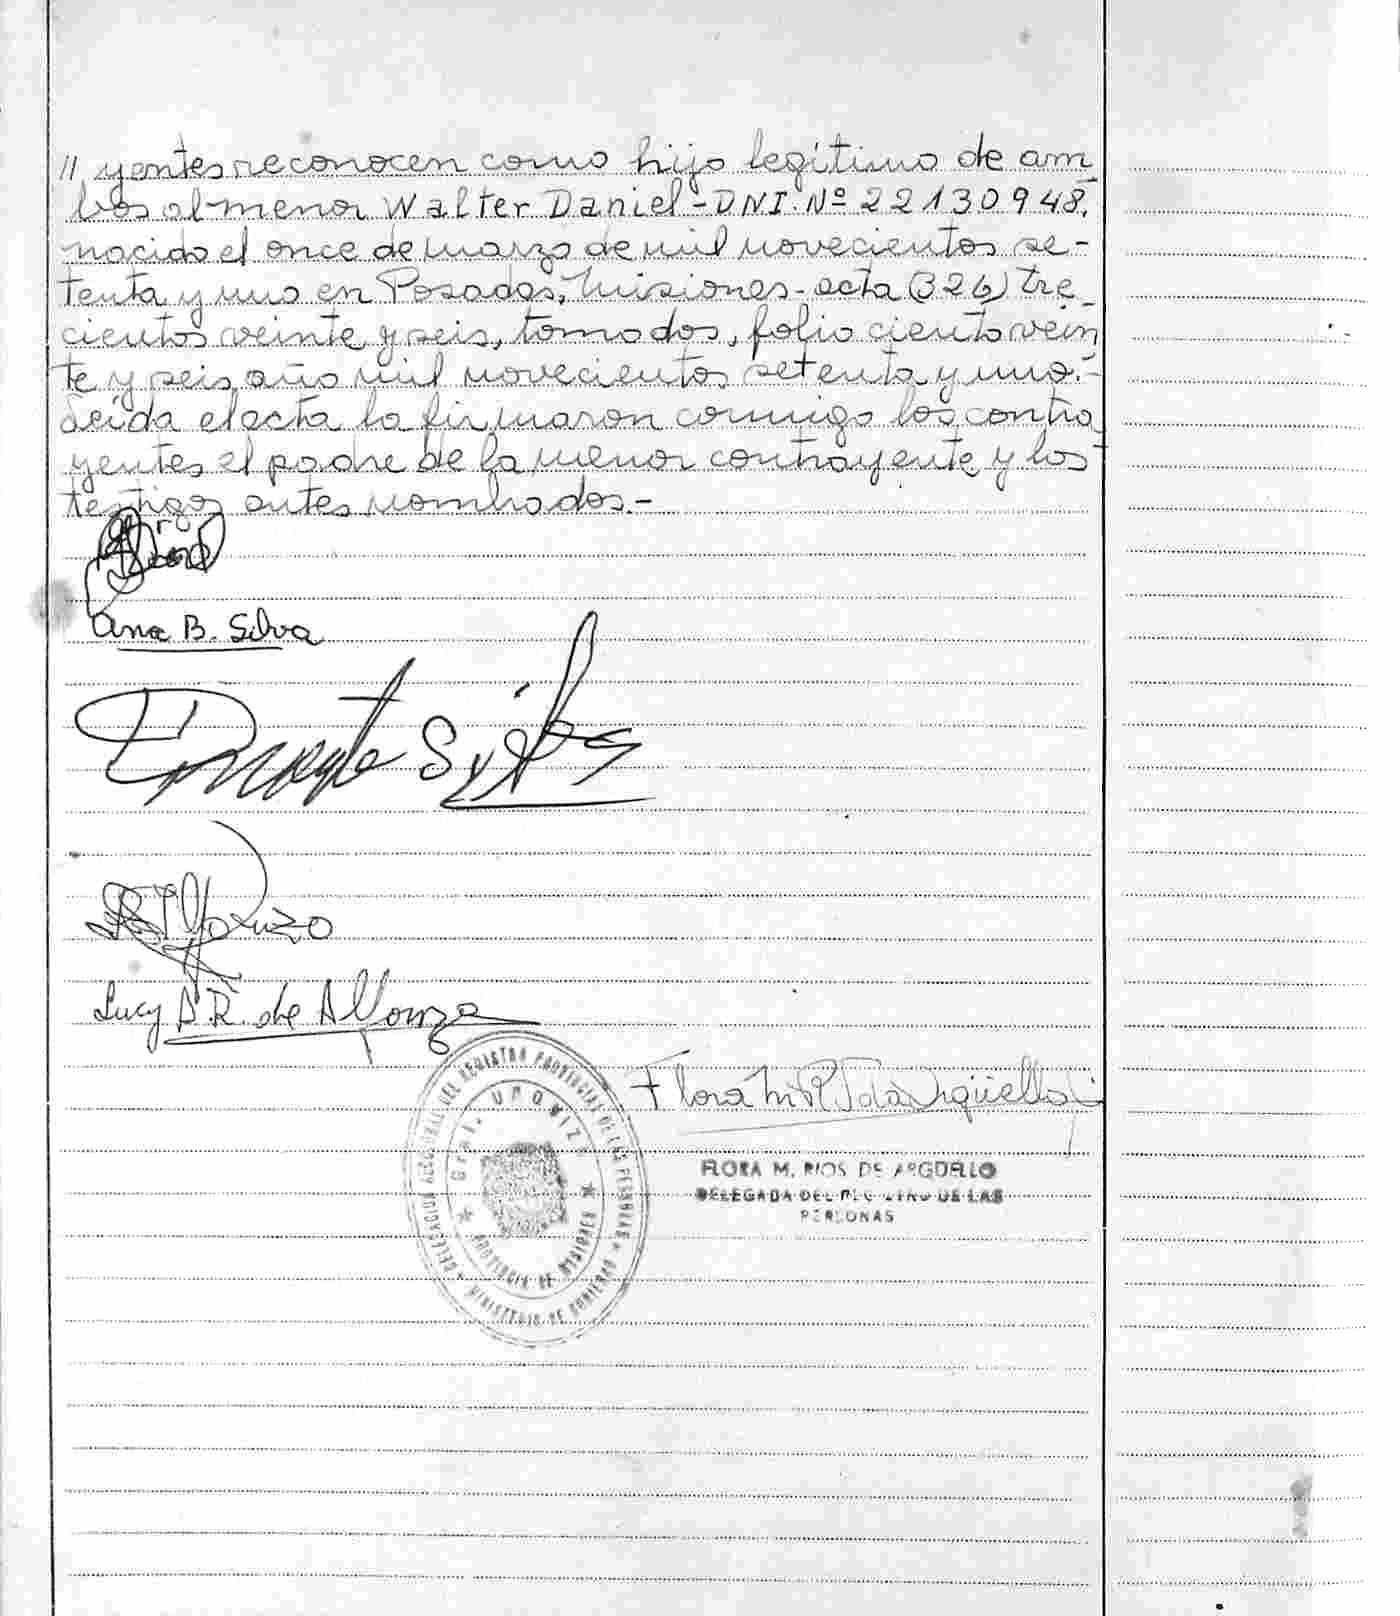 // yentes reconocen como hijo legítimo de am_
bos al menor Walter Daniel-DNI. Nº 22130948,
nacido el once de marzo de mil novecientos se-
tenta y uno en Posadas, Misiones-acta (326) tre_
cientos veinte y seis, tomo dos, folio ciento vein
te y seis año mil novecientos setenta y uno.-
Leída el acta la firmaron conmigo los contra
yentes, el padre de la menor contrayente y los
testigos antes nombrados.-
Ana B. Silva
Silva
Alfonzo
Lucy B.R. de Alfonzo
DELEGACION REGIONAL DEL REGISTRO PROVINCIAL DE LAS PERSONAS
Gral. URQUIZA
PROVINCIA DE MISIONES
MINISTERIO DE GOBIERNO
Flora M R de Argüello
FLORA M. RIOS DE ARGUELLO
DELEGADA DEL REGISTRO DE LAS
PERSONAS